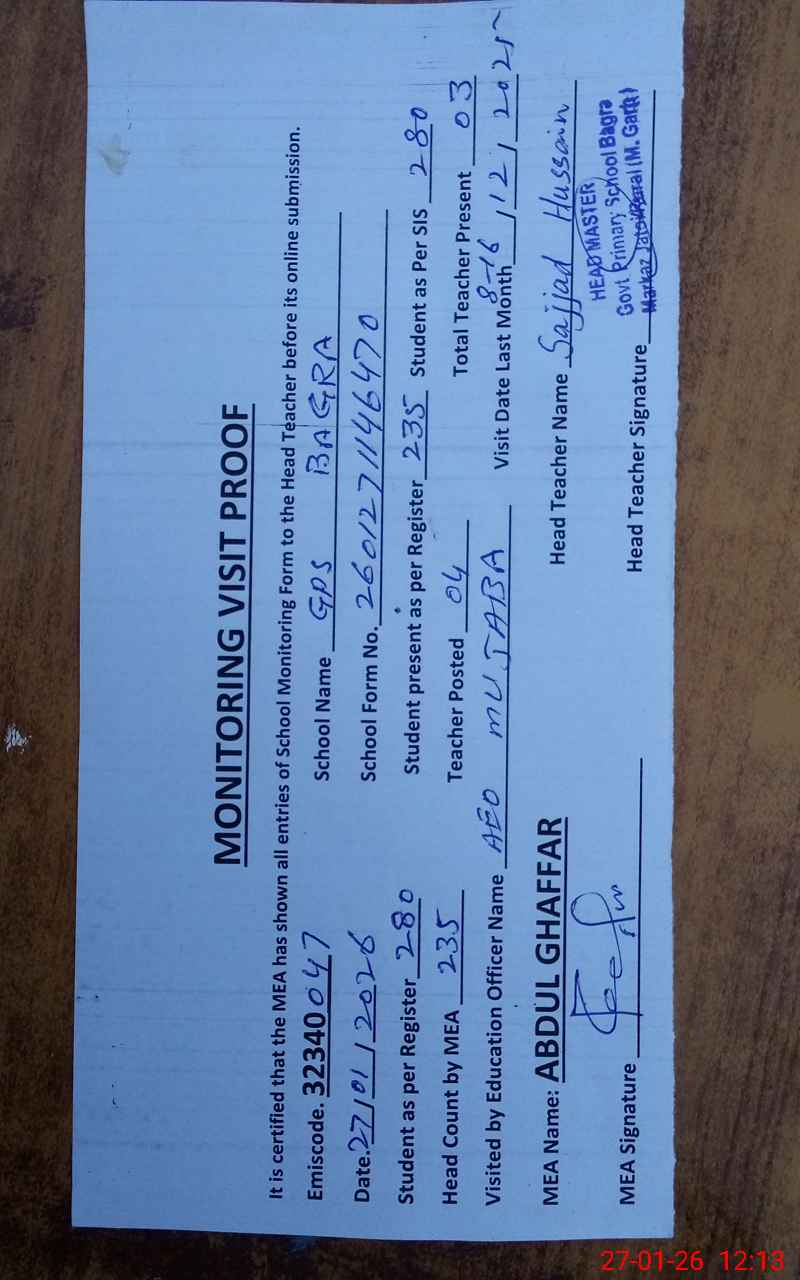 MONITORING VISIT PROOF
It is certified that the MEA has shown all entries of School Monitoring Form to the Head Teacher before its online submission.
Emiscode. 32340047 School Name GPS BAGRA
Date. 27/01/2026 School Form No. 26012711146470
Student as per Register 280 Student present as per Register 235 Student as Per SIS 280
Head Count by MEA 235 Teacher Posted 04 Total Teacher Present 03
Visited by Education Officer Name AEO MUJTABA Visit Date Last Month 8-16/12/2025
MEA Name: ABDUL GHAFFAR Head Teacher Name Sajjad Hussain
HEAD MASTER
Govt Primary School Bagra
Markaz Jatoi (M. Garh)
MEA Signature Head Teacher Signature
27-01-26 12:13